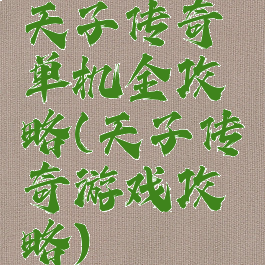 天子传奇
单机全攻
略(天子传
奇游戏攻
略)